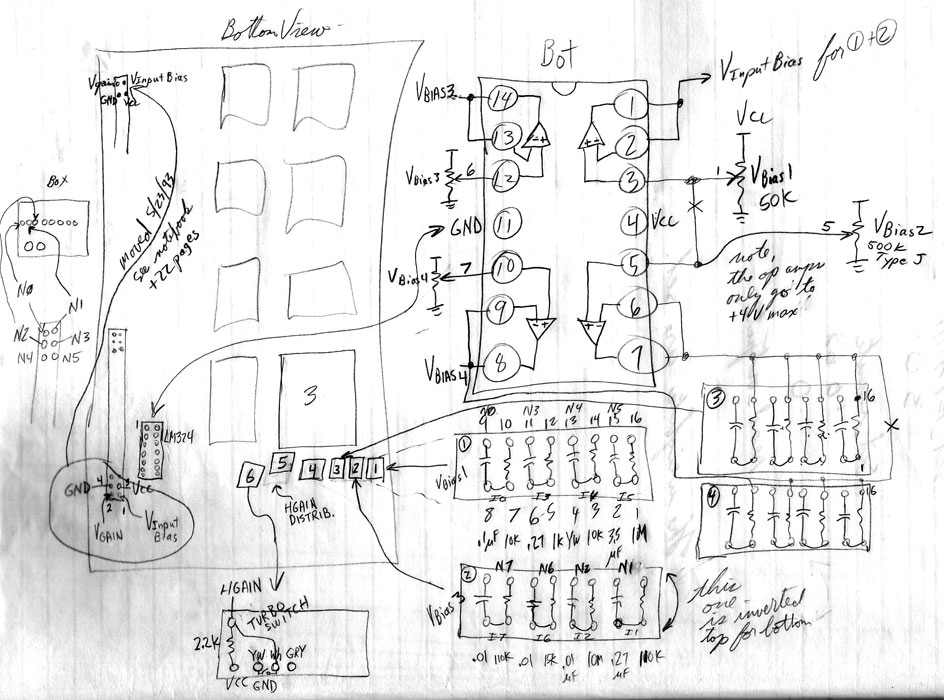 Bottom View
Vgain VInput Bias
GND Vcc
Box
moved 5/23/93
see notebook
+22 pages
N0
N1
N2 N3
N4 N5
3
1
LM324
6 5 4 3 2 1
HGAIN
DISTRIB.
GND 4 3 Vcc
2 1
VGAIN
VInput
Bias
HGAIN
TURBO
SWITCH
2.2K
YW Wh GRY
VCC GND
Bot
VBIAS3
14
13
12
11
10
9
8
1
2
3
4 Vcc
5
6
7
VBias3 6
GND
VBias4 7
VBIAS4
VInput Bias for ① + ②
Vcc
1
VBias1
50K
5
VBias2
500K
Type J
note,
the op amps
only go to
+4V max!
N0 N3 N4 N5
9 10 11 12 13 14 15 16
①
VBias1
I0 I3 I4 I5
8 7 6 5 4 3 2 1
.1µF 10K .27 1K YW 10K 33 1M
µF
②
N7 N6 N2 N1
VBias3
I7 I6 I2 I1
.01 110K .01 15K .01 10M .27 100K
µF µF
this
one
is inverted
top for bottom
③
16
1
④
16